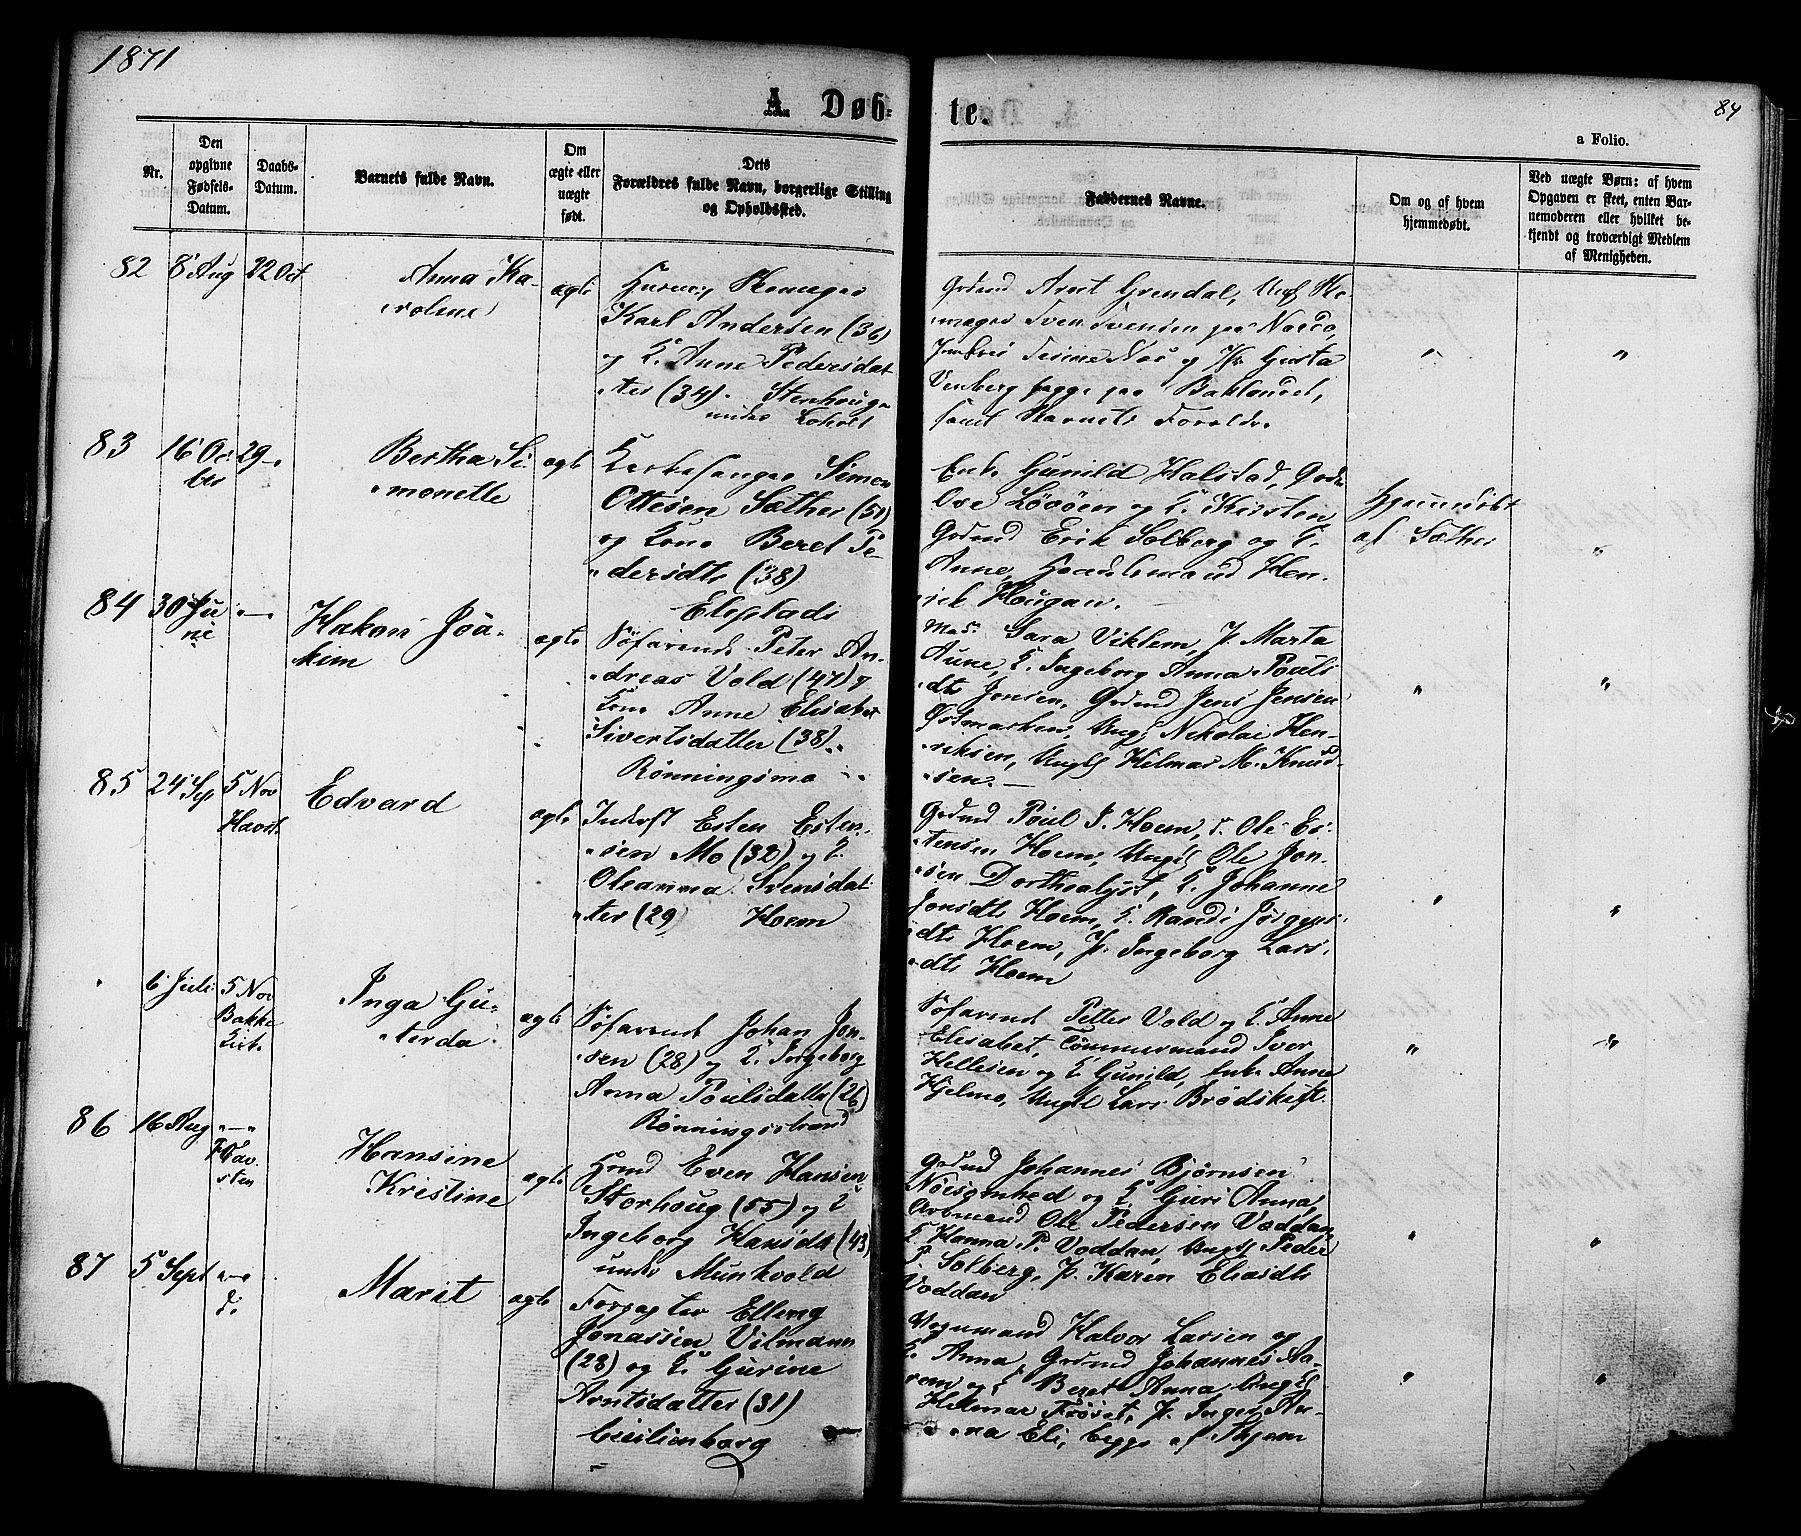 1871
84
A. Døb-
te.
a Folio.
Nr.
Den
opgivne
Fødsels-
Datum.
Daabs-
Datum.
Barnets fulde Navn.
Om
ægte eller
uægte
født.
Dets
Forældres fulde Navn, borgerlige Stilling
og Opholdssted.
Faddernes Navne.
Om og af hvem
hjemmedøbt.
Ved uægte Børn: af hvem
Opgaven er skeet, enten Bar-
nemoderen eller hvilket be-
kjendt og troværdigt Medlem
af Menigheden.
82 8 Aug 22 Oct
Anna Ka-
roline
ægte
Karl Andersen (36)
og K. Anne Pedersdat
ter (34).
Grdmd Arnt Grendal, Ungk
Sven Svensen paa
og P. Gusta
begge paa Baklandet,
samt Barnets Forældre.
83 16 Oc
ber
29 –
Bertha Si-
monette
ægte
Kirkesanger Simon
Ottesen Sæther (51)
og Kone Beret Pe-
dersdtr (38)
Elvplads
Enke Gunild Halstad, Grdm
Ove Løvöen og K. Kirsten
Grdmd Erik Solberg og K.
Anne, Haandsmand Hen-
rik Hougan.
Hjemmedøbt
af Sæther
84 30 Ju
ni
Hakon Joa-
kim
ægte
Søfarende Peter An-
dreas Vold (47) og
Kone Anne Elisabet
Sivertsdatter (38)
Rönningsmo
Mad. Sara Viklem, P. Marta
Aune, K. Ingeborg Anna Pouls
dtr Jensen, Grdmd Jens Jensen
Østmarken, Ungk Nikolai Hen-
riksen, Ungk Hilmar M. Knud-
sen. –
85 24 Sep 5 Nov
Havst.
Edvard
ægte
Inderst Esten Esten-
sen Mo (32) og K.
Oleanna Svensdat
ter (29) Hoem
Grdmd Poul J. Hoem, Ole Es-
tensen Hoem, Ungk Ole Jon-
sen Dorthealyst, K. Johanne
Jonsdtr Hoem, K. Randi Jørgens-
dtr Hoem, P. Ingeborg Lars-
dtr Hoem
6 Juli 5 Nov
Bakke
Kirke
Inga Gu-
rterda
ægte
Søfarende Johan Jon-
sen (28) og K. Ingeborg
Anna Poulsdatter (26)
Rönningsstrand
Søfarende Petter Vold og K. Anne
Elisabet, Tömmermand Iver
Hellesen og K. Gunild, Enke Anne
Hjelmo, Ungk Lars Brödskift.
86 16 Aug
Hansine
Kristine
ægte
Even Hansen
Storhoug (55) og K
Ingeborg Hansdtr (43)
under Munkvold
Grdmd Johannes Bjørnsen
Nöisomhed og K Guri Anna,
Arbmand Ole Pedersen Voddan
K Hanna P. Voddan, Ungk Peder
P. Solberg, P. Karen Eliasdtr
Voddan
87 5 Sept
do
Marit
ægte
Forpagter Elling
Jonassen Vilmann
(28) og K. Gurine
Arntsdatter (31)
Cicilienborg
Vognmand Halvor Larsen og
K. Anna, Grdmd Johannes Aa-
rem og K Beret Anna, Ungk
Helmer P. Inger An-
na Eli, begge af Skjerm